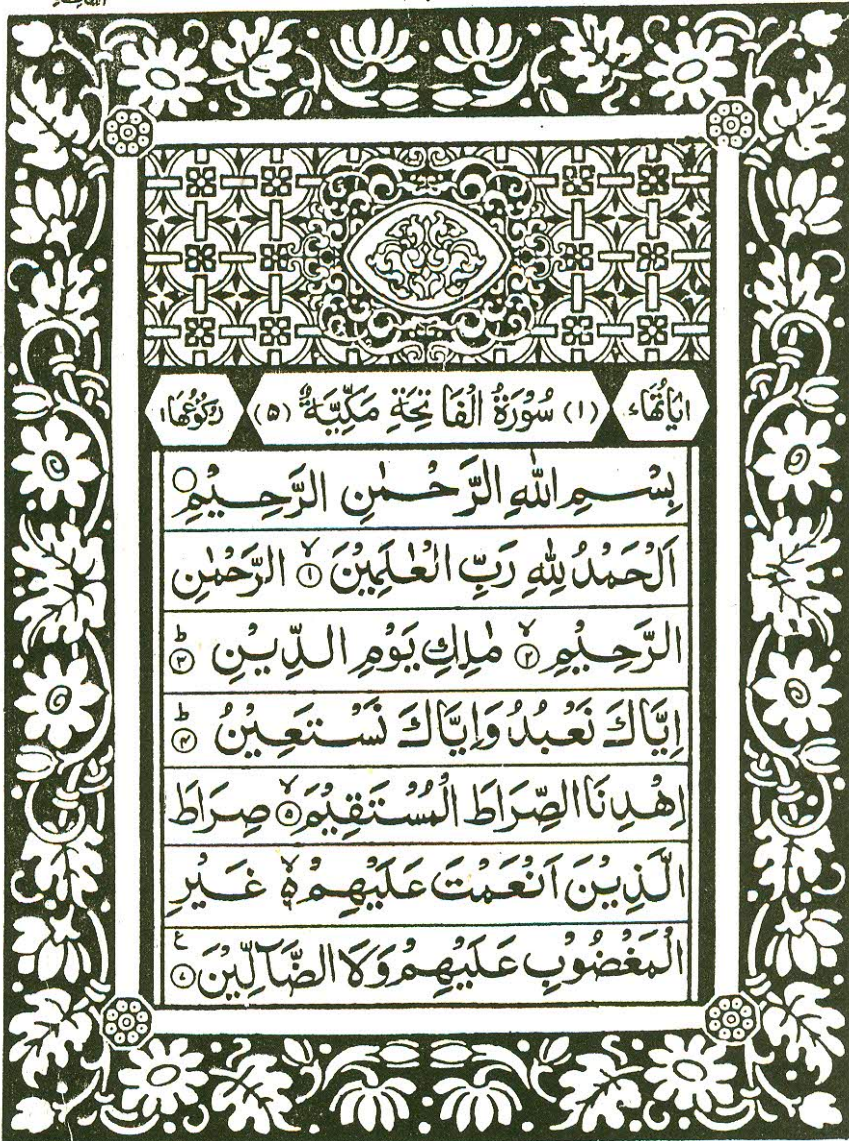 اٰيَاتُهَا، (۱) سُوْرَةُ الْفَاتِحَةِ مَكِّيَّةٌ (۵) رُكُوْعُهَا۱
بِسْمِ اللّٰهِ الرَّحْمٰنِ الرَّحِيْمِ ○
اَلْحَمْدُ لِلّٰهِ رَبِّ الْعٰلَمِيْنَ ۙ﴿۱﴾ الرَّحْمٰنِ
الرَّحِيْمِ ۙ﴿۲﴾ مٰلِكِ يَوْمِ الدِّيْنِ ؕ﴿۳﴾
اِيَّاكَ نَعْبُدُ وَاِيَّاكَ نَسْتَعِيْنُ ؕ﴿۴﴾
اِهْدِنَا الصِّرَاطَ الْمُسْتَقِيْمَ ۙ﴿۵﴾ صِرَاطَ
الَّذِيْنَ اَنْعَمْتَ عَلَيْهِمْ ۙ۬ۙ غَيْرِ
الْمَغْضُوْبِ عَلَيْهِمْ وَلَا الضَّآلِّيْنَ ﴿۷﴾ ع